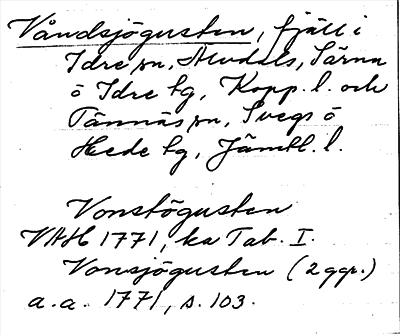 Våndsjögusten, fjäll i
Idre sn, Älvdals, Särna
o Idre tg, Kopp. l. och
Tännäs sn, Svegs o
Hede tg, Jämtl. l.
Vonstögusten
VAH 1771, ka Tab. I.
Vonsjögusten (2 ggr.)
a. a. 1771, s. 103.